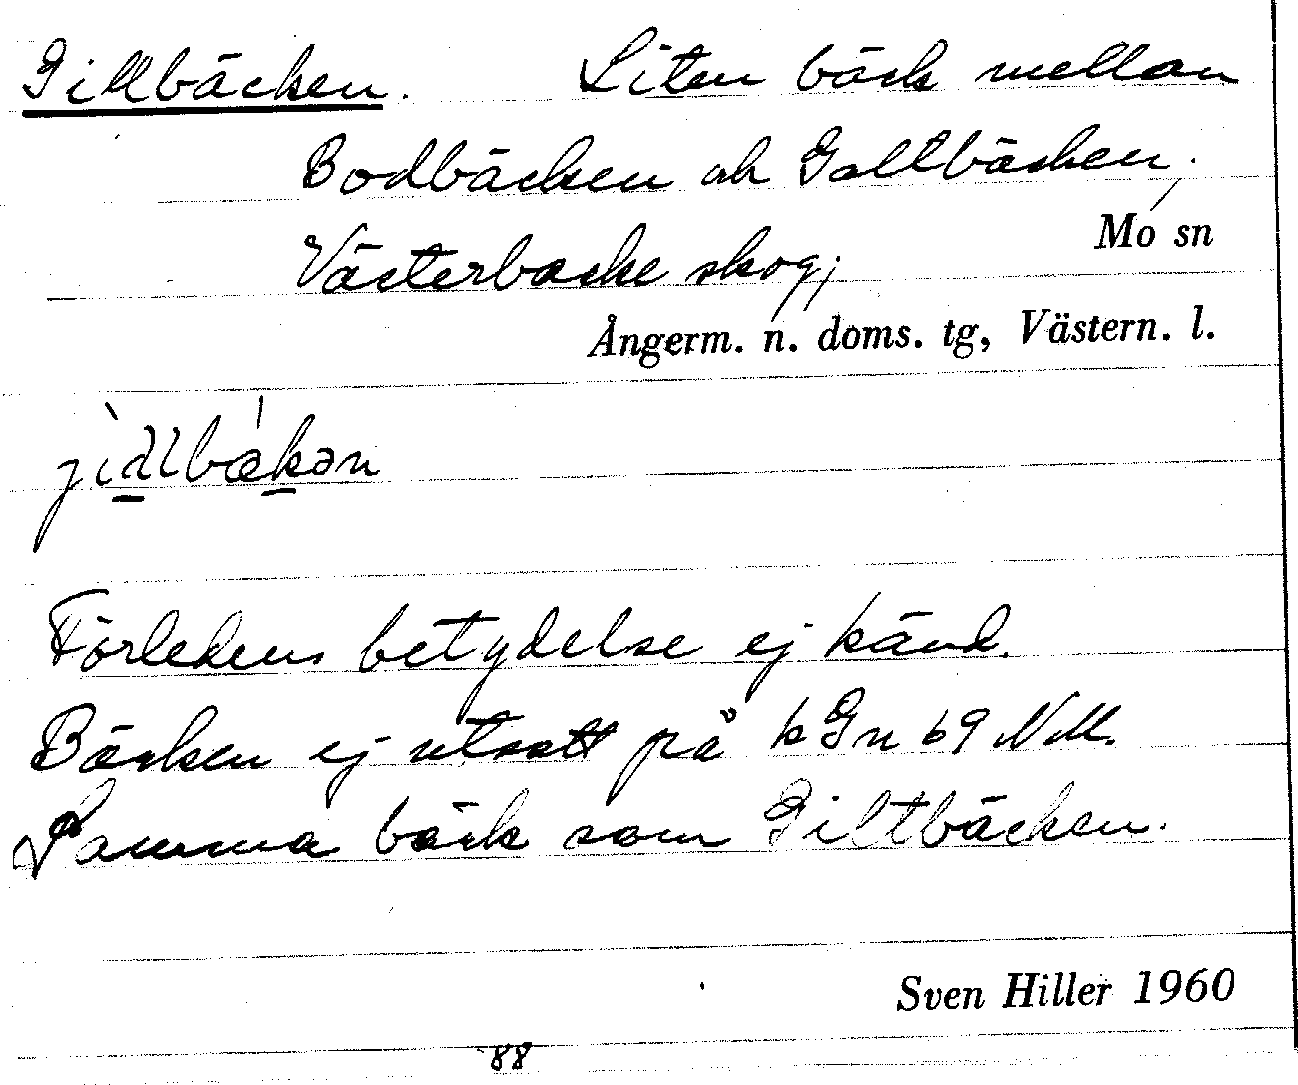 Gillbäcken. Liten bäck mellan
Bodbäcken och Galtbäcken,
Mo sn
Västerbacke skog;
Ångerm. n. doms. tg, Västern. l.
Förledens betydelse ej känd.
Bäcken ej utsatt på kGn 69 NM.
Samma bäck som Giltbäcken.
Sven Hiller 1960
88